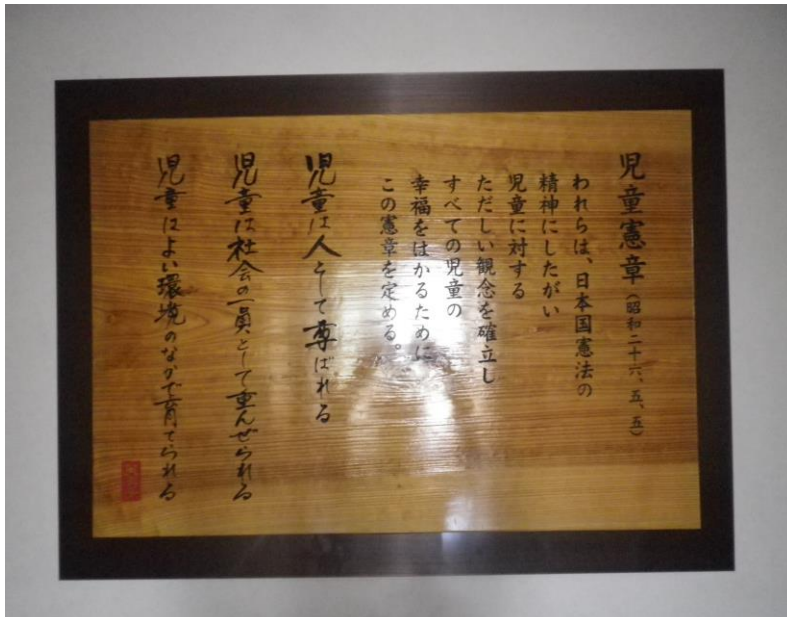 児童憲章(昭和二十六、五、五)
われらは、日本国憲法の
精神にしたがい
児童に対する
ただしい観念を確立し
すべての児童の
幸福をはかるために
この憲章を定める。
児童は人として尊ばれる
児童は社会の一員として重んぜられる
児童はよい環境のなかで育てられる